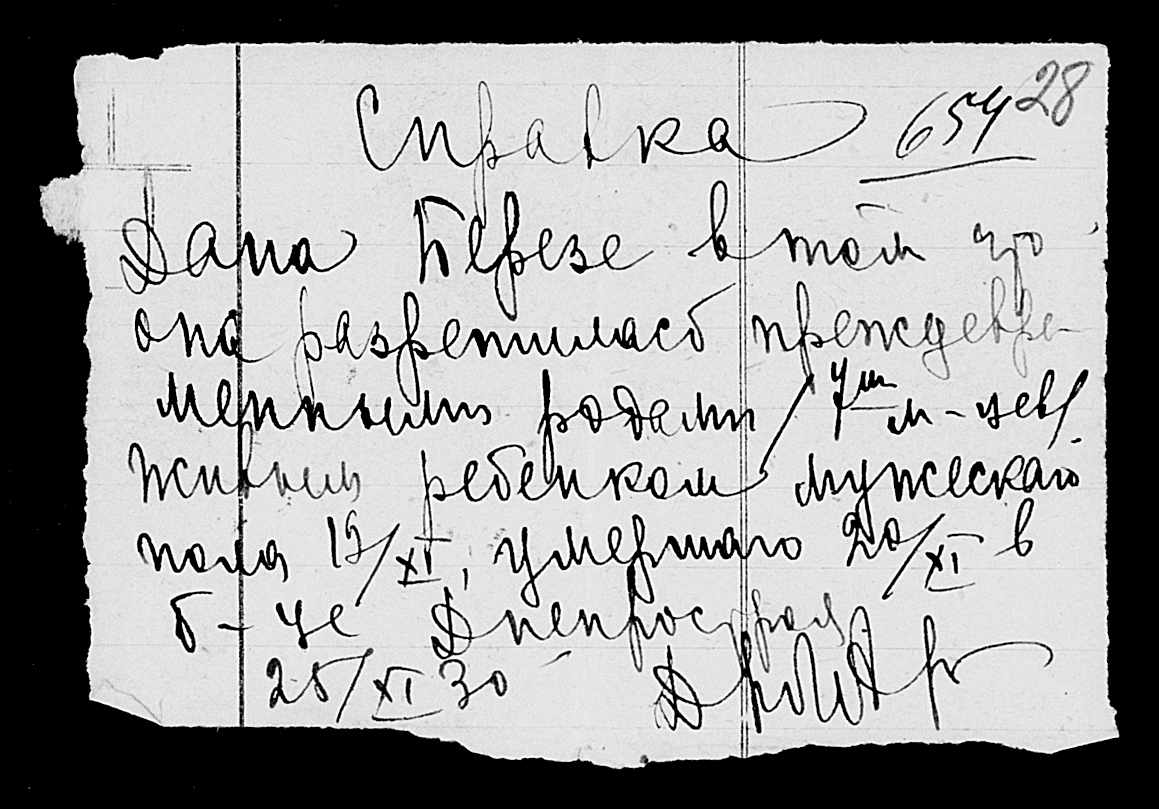 Справка 654 28
Дана Березе в том что
она разрешилась преждевре-
менными родами /7ми м-цев/
живым ребенком мужескаго
пола 19/XI, умершаго 20/XI в
б-це Днепростроя
25/XI 30